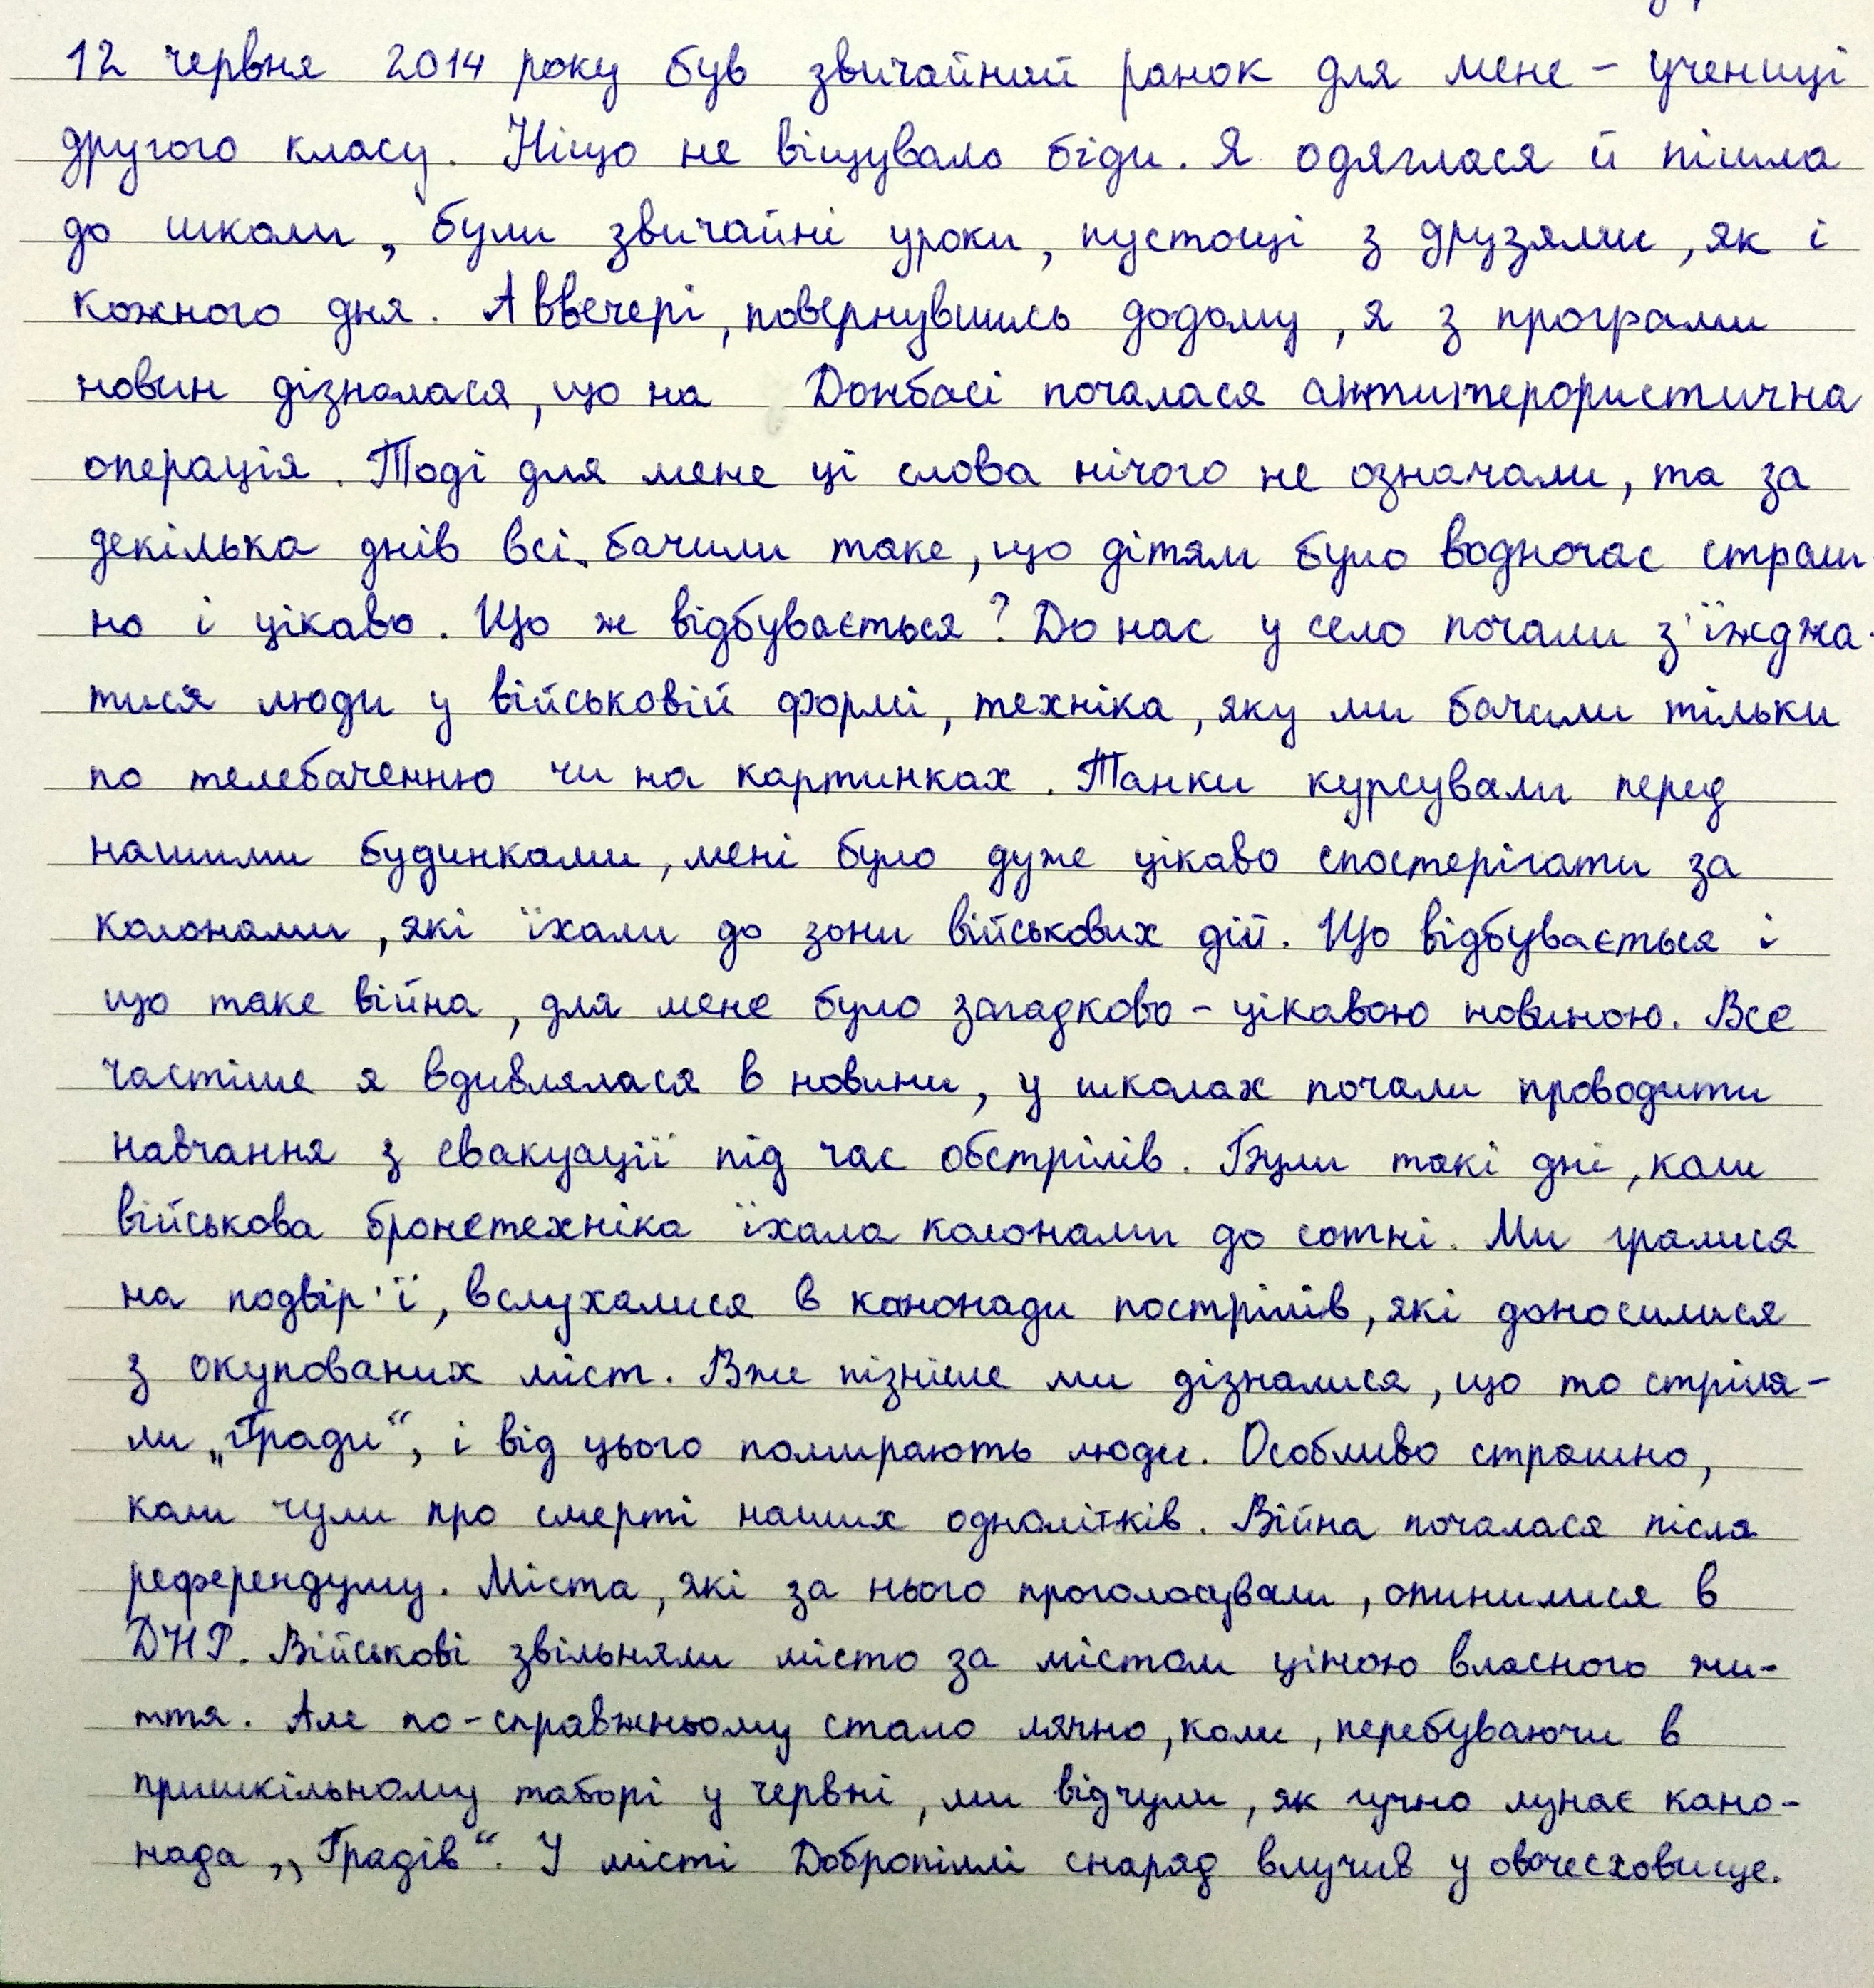 12 червня 2014 року був звичайний ранок для мене – учениці
другого класу. Ніщо не віщувало біди. Я одяглася й пішла
до школи, були звичайні уроки, пустощі з друзями, як і
кожного дня. А ввечері, повернувшись додому, я з програми
новин дізналася, що на Донбасі почалася антитерористична
операція. Тоді для мене ці слова нічого не означали, та за
декілька днів всі бачили таке, що дітям було водночас страш
но і цікаво. Що ж відбувається? До нас у село почали з'їжджа-
тися люди у військовій формі, техніка, яку ми бачили тільки
по телебаченню чи на картинках. Танки курсували перед
нашими будинками, мені було дуже цікаво спостерігати за
колонами, які їхали до зони військових дій. Що відбувається і
що таке війна, для мене було загадково-цікавою новиною. Все
частіше я вдивлялася в новини, у школах почали проводити
навчання з евакуації під час обстрілів. Були такі дні, коли
військова бронетехніка їхала колонами до сотні. Ми гралися
на подвір'ї, вслухалися в канонади пострілів, які доносилися
з окупованих міст. Вже пізніше ми дізналися, що то стріля-
ли „Гради“, і від цього помирають люди. Особливо страшно,
коли чули про смерті наших однолітків. Війна почалася після
референдуму. Міста, які за нього проголосували, опинилися в
ДНР. Військові звільняли місто за містом ціною власного жи-
ття. Але по-справжньому стало лячно, коли, перебуваючи в
пришкільному таборі у червні, ми відчули, як гучно лунає кано-
нада „Градів“. У місті Добропіллі снаряд влучив у овочесховище.